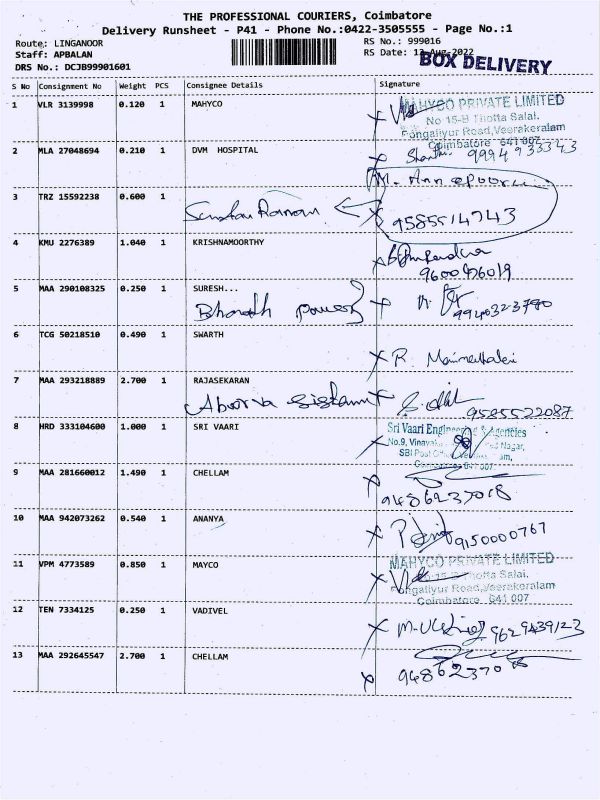 THE PROFESSIONAL COURIERS, Coimbatore
Delivery Runsheet - P41 - Phone No.:0422-3505555 - Page No.:1
Route: LINGANOOR RS No.: 999016
Staff: APBALAN RS Date: 12-Aug-2022
DRS No.: DCJB99901601 BOX DELIVERY
S No Consignment No Weight PCS Consignee Details Signature
1 VLR 3139998 0.120 1 MAHYCO
MAHYCO PRIVATE LIMITED
No 15-B Thotta Salai,
Pongaliyur Road,Veerakeralam
Coimbatore 641 007
2 MLA 27048694 0.210 1 DVM HOSPITAL
9994933343
3 TRZ 15592238 0.600 1
9585514743
4 KMU 2276389 1.040 1 KRISHNAMOORTHY
9600476019
5 MAA 290108325 0.250 1 SURESH...
Bharath 9940323790
6 TCG 50218510 0.490 1 SWARTH
R.
7 MAA 293218889 2.700 1 RAJASEKARAN
9585522087
8 HRD 333104600 1.000 1 SRI VAARI
Sri Vaari Engineering & Agencies
No.9, Nagar,
SBI Post
641 007
9 MAA 281660012 1.490 1 CHELLAM
9486237018
10 MAA 942073262 0.540 1 ANANYA
9150000767
11 VPM 4773589 0.850 1 MAYCO
MAHYCO PRIVATE LIMITED
No 15-B Thotta Salai,
Pongaliyur Road,Veerakeralam
Coimbatore 641 007
12 TEN 7334125 0.250 1 VADIVEL
9629439123
13 MAA 292645547 2.700 1 CHELLAM
9486237018